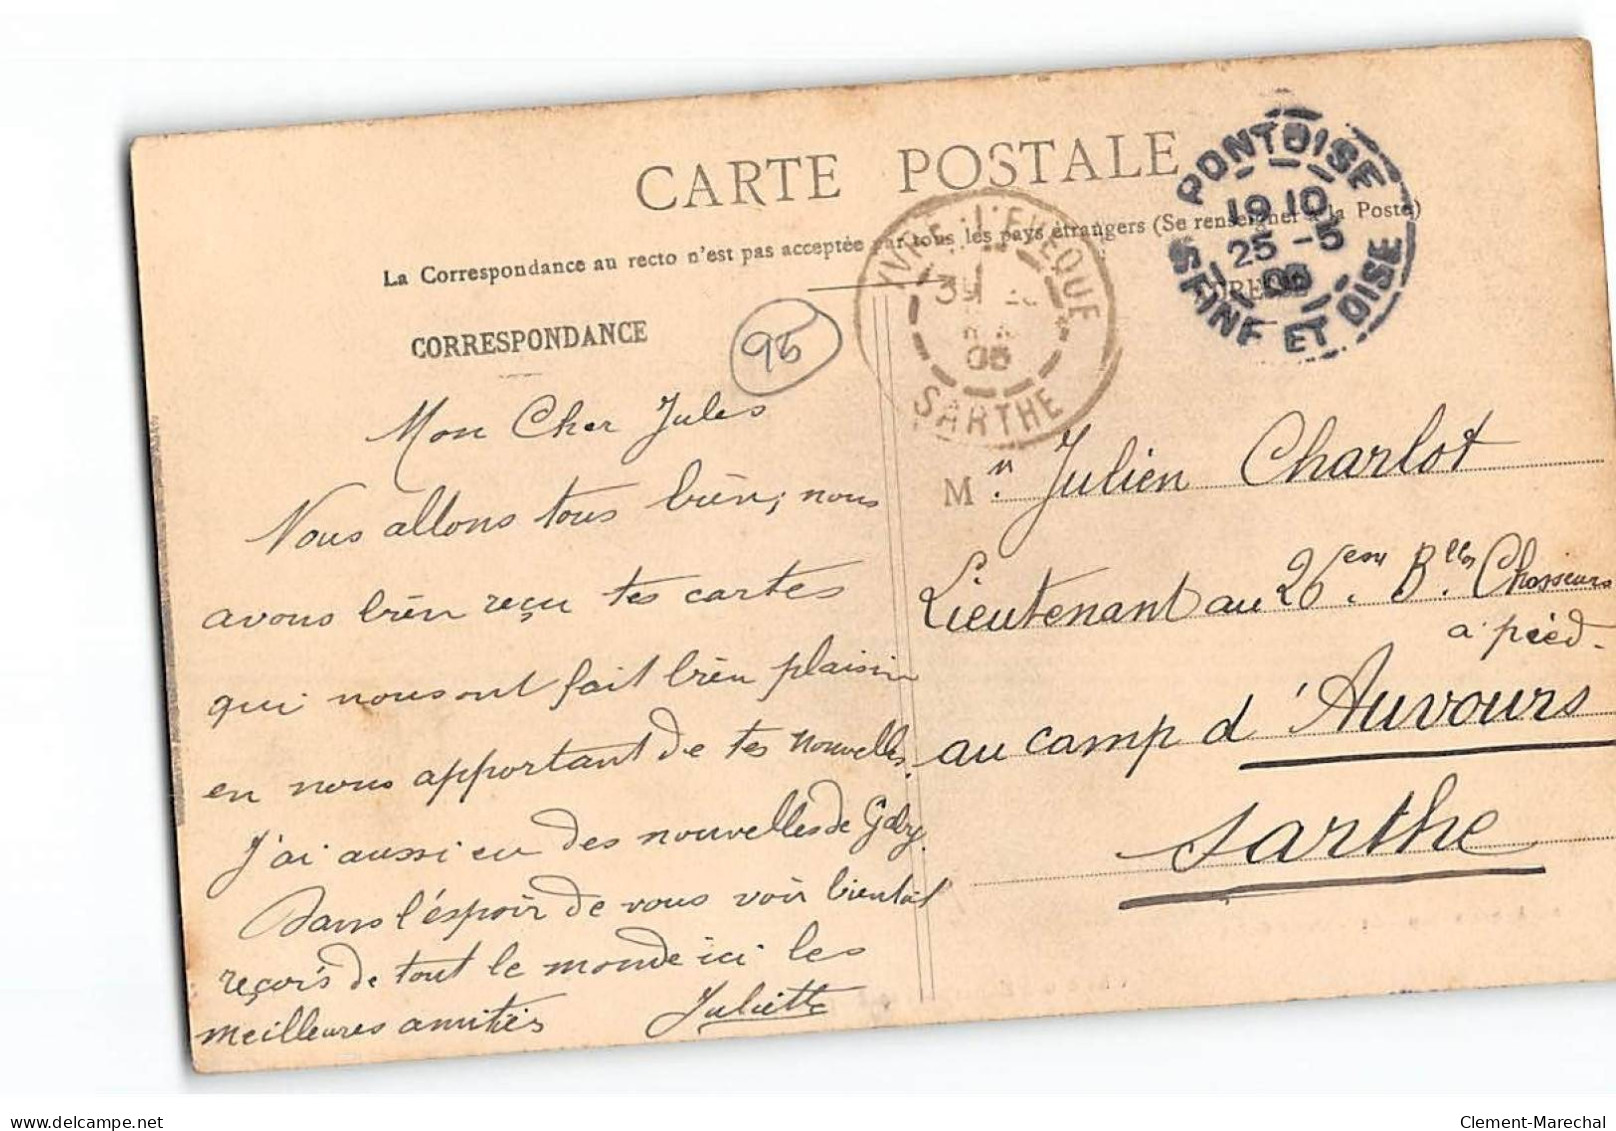 CARTE POSTALE
La Correspondance au recto n'est pas acceptée par tous les pays étrangers (Se renseigner à la Poste)
CORRESPONDANCE
95
YVRÉ-L'EVEQUE
05
SARTHE
PONTOISE
19 10
25 -5
SEINE ET OISE
Mon Cher Jules
Nous allons tous bien, nous
avons bien reçu tes cartes
qui nous ont fait bien plaisir
en nous apportant de tes nouvelles.
J'ai aussi eu des nouvelles de Gaby.
Dans l'éspoir de vous voir bientôt
reçois de tout le monde ici les
meilleures amitiés Juliette
M r. Julien Charlot
Lieutenant au 26 eme. B llon. Chasseurs
a pied.
au camp d'Auvours
Sarthe
Clement-Marechal